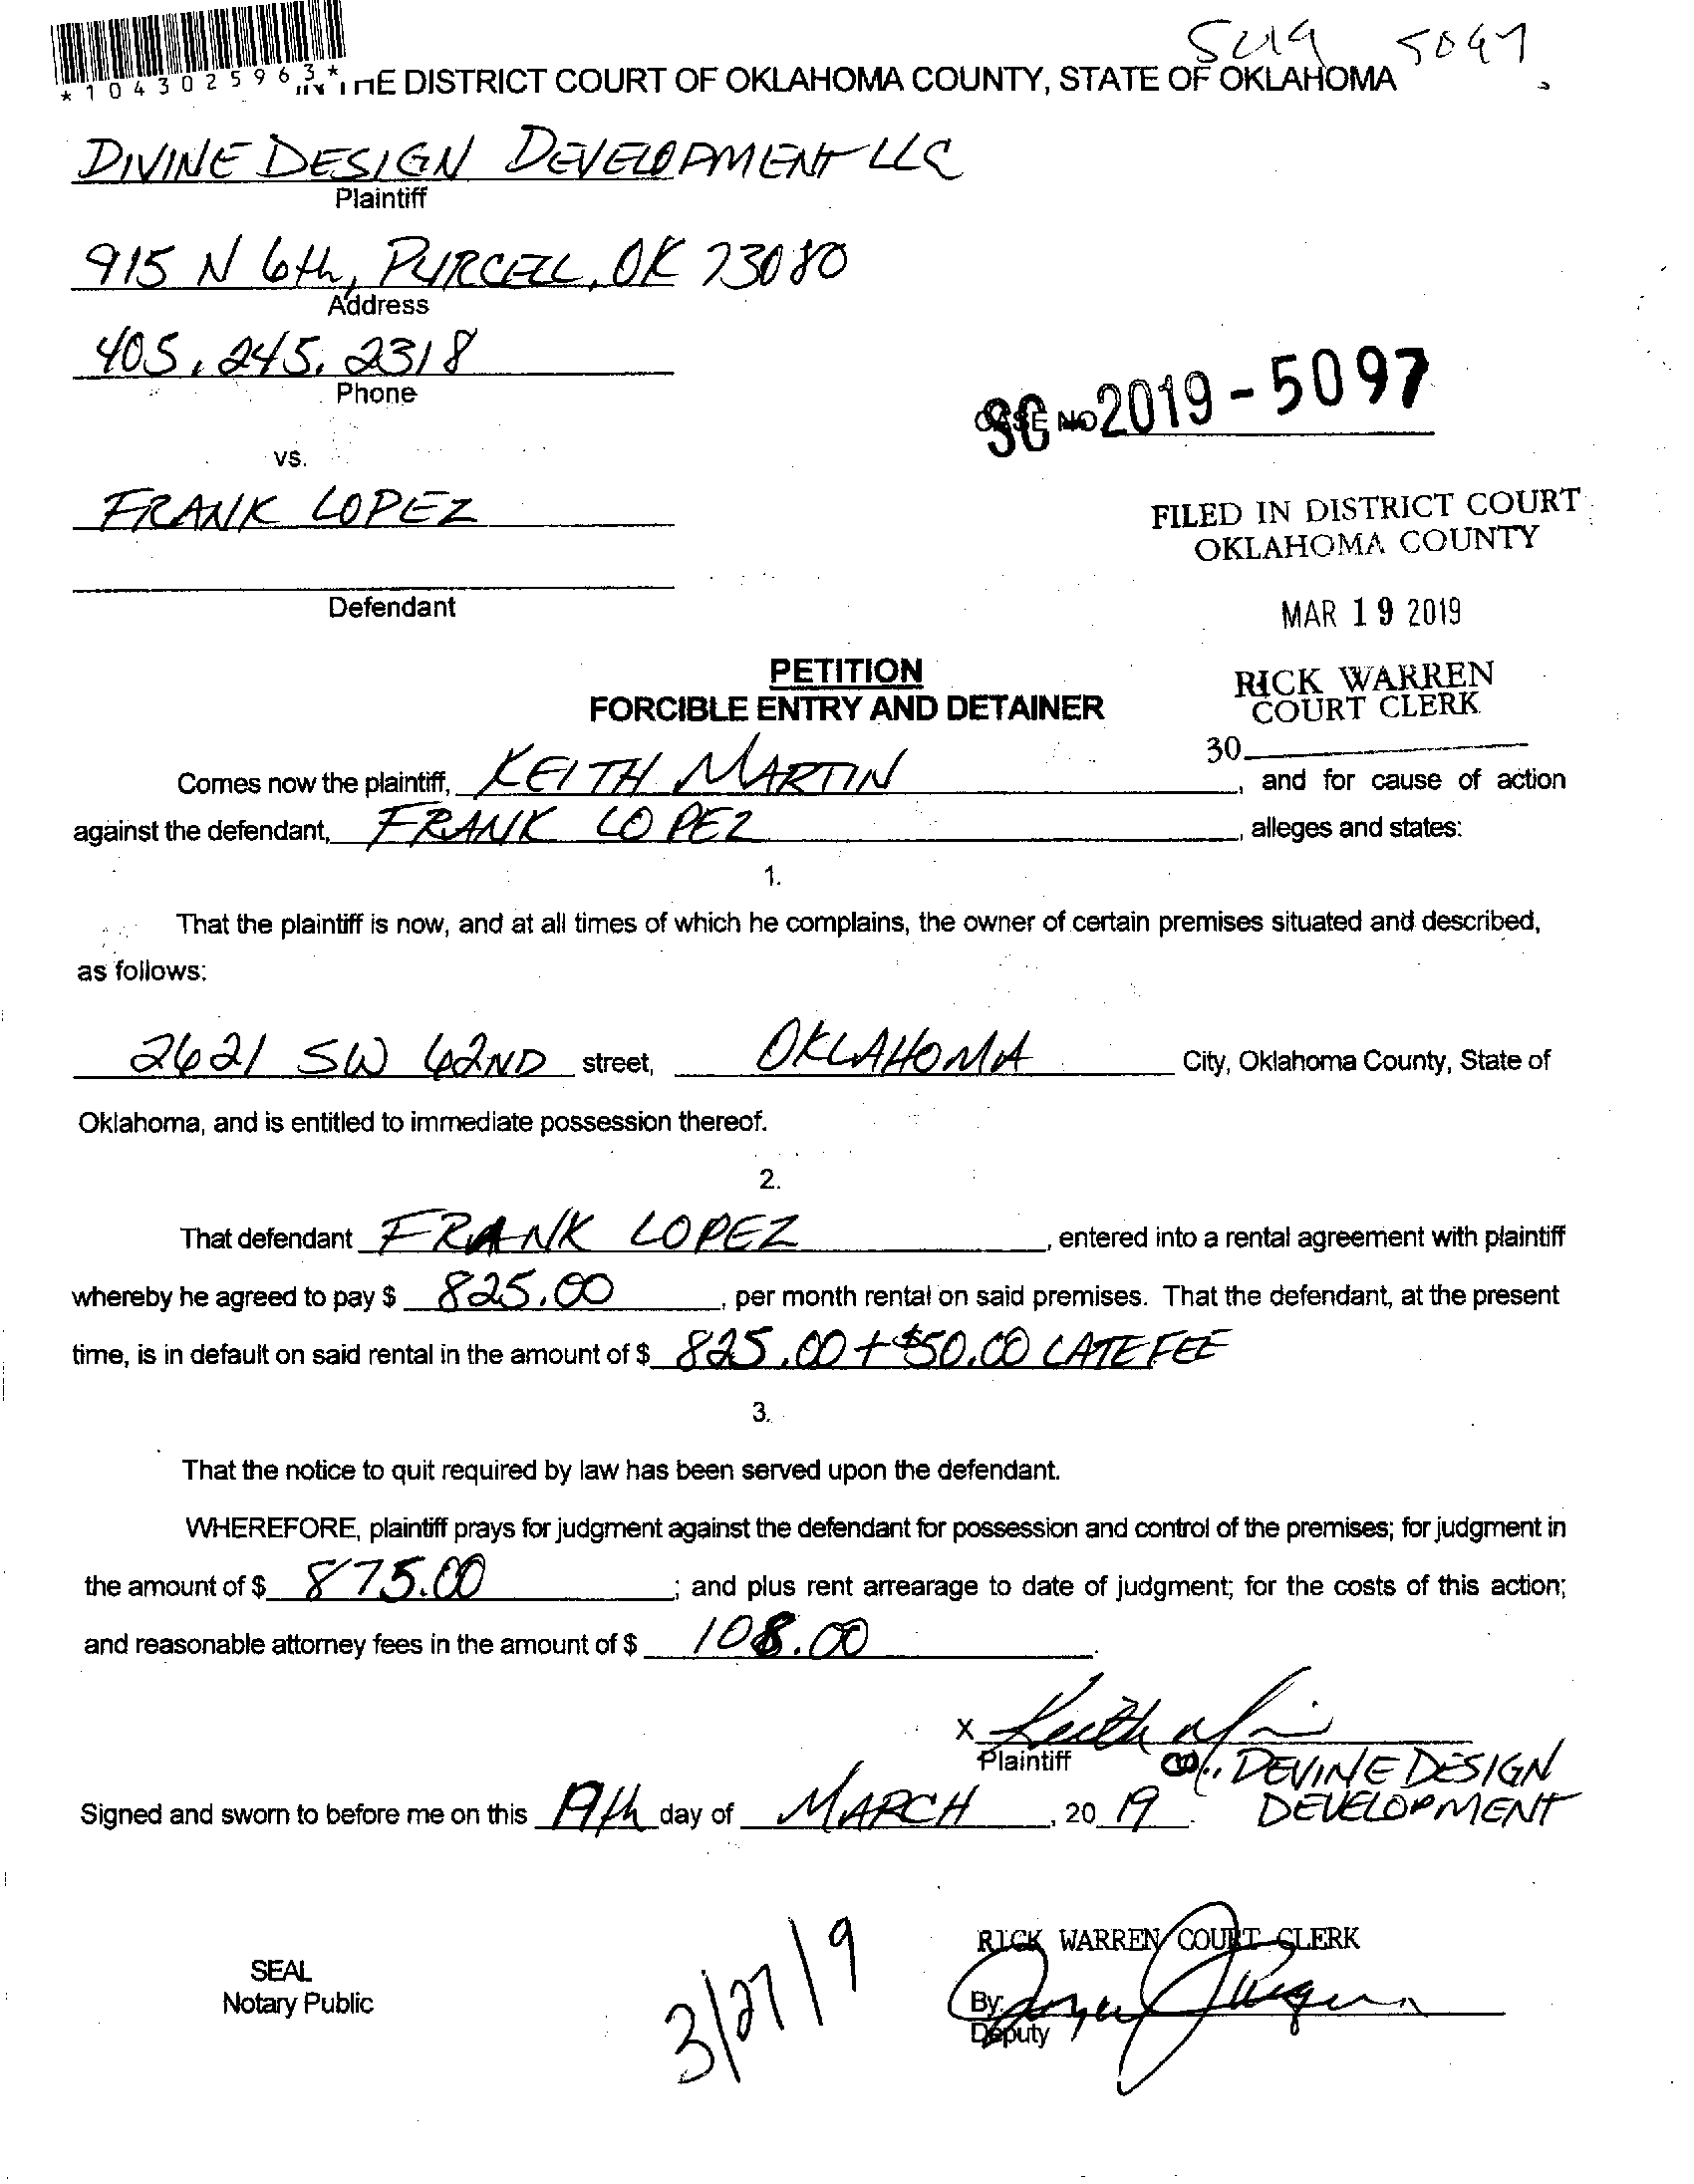 *1043025963*
5097
IN THE DISTRICT COURT OF OKLAHOMA COUNTY, STATE OF OKLAHOMA
DIVINE DESIGN DEVELOPMENT LLC
Plaintiff
915 N 6th, PURCELL, OK 73080
Address
405.245.2318
Phone
SC CASE NO 2019-5097
vs.
FRANK LOPEZ
FILED IN DISTRICT COURT
OKLAHOMA COUNTY
Defendant
MAR 19 2019
PETITION
FORCIBLE ENTRY AND DETAINER
RICK WARREN
COURT CLERK
30
Comes now the plaintiff, KEITH MARTIN, and for cause of action
against the defendant, FRANK LOPEZ, alleges and states:
1.
That the plaintiff is now, and at all times of which he complains, the owner of certain premises situated and described,
as follows:
2621 SW 62ND street, OKLAHOMA City, Oklahoma County, State of
Oklahoma, and is entitled to immediate possession thereof.
2.
That defendant FRANK LOPEZ, entered into a rental agreement with plaintiff
whereby he agreed to pay $ 825.00, per month rental on said premises. That the defendant, at the present
time, is in default on said rental in the amount of $ 825.00 + $50.00 LATE FEE
3.
That the notice to quit required by law has been served upon the defendant.
WHEREFORE, plaintiff prays for judgment against the defendant for possession and control of the premises; for judgment in
the amount of $ 875.00; and plus rent arrearage to date of judgment; for the costs of this action;
and reasonable attorney fees in the amount of $ 108.00.
X Keith
Plaintiff DEVINE DESIGN
DEVELOPMENT
Signed and sworn to before me on this 19th day of MARCH, 2019.
RICK WARREN COURT CLERK
SEAL
Notary Public
3/27/19
By
Deputy